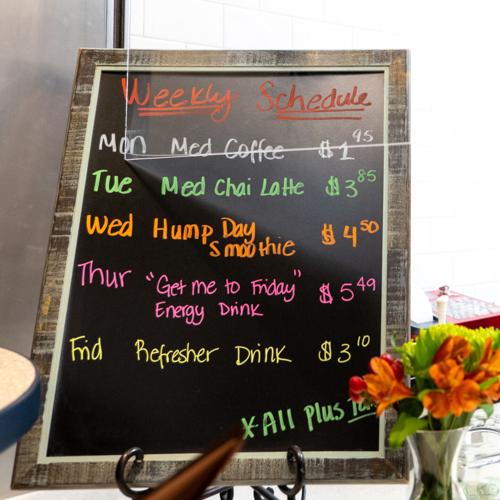 Weekly Schedule
Mon Med Coffee $1 95
Tue Med Chai Latte $3 85
Wed Hump Day Smoothie $4 50
Thur "Get me to Friday" Energy Drink $5 49
Frid Refresher Drink $3 10
X-All Plus